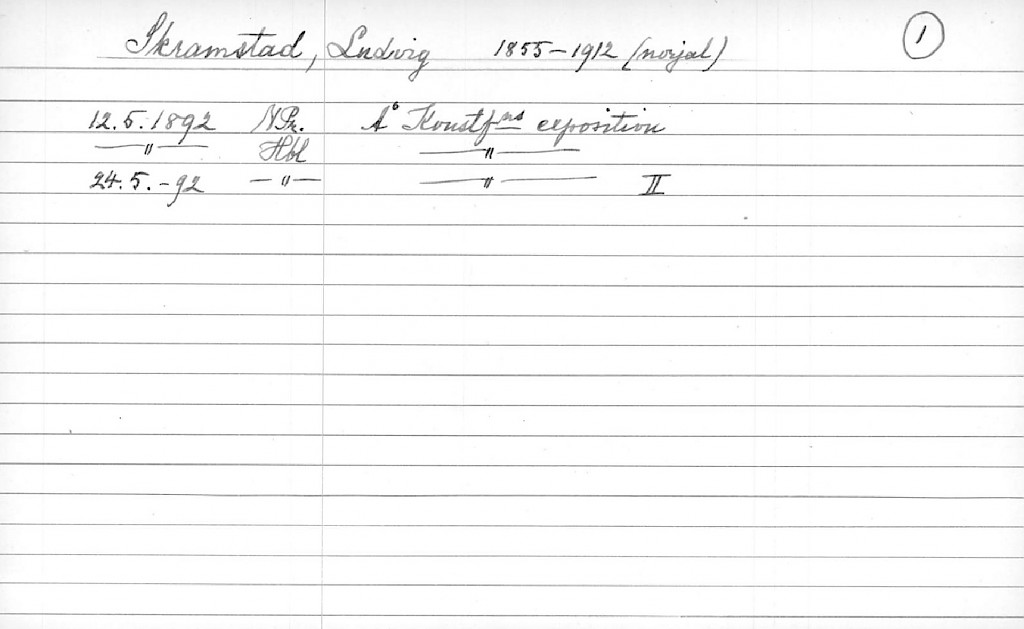 Skramstad, Ludvig 1855-1912 (norjal) 1
12.5.1892 NPr. Å Konstfns exposition
—〃— Hbl —〃—
24.5.-92 —〃— —〃— II